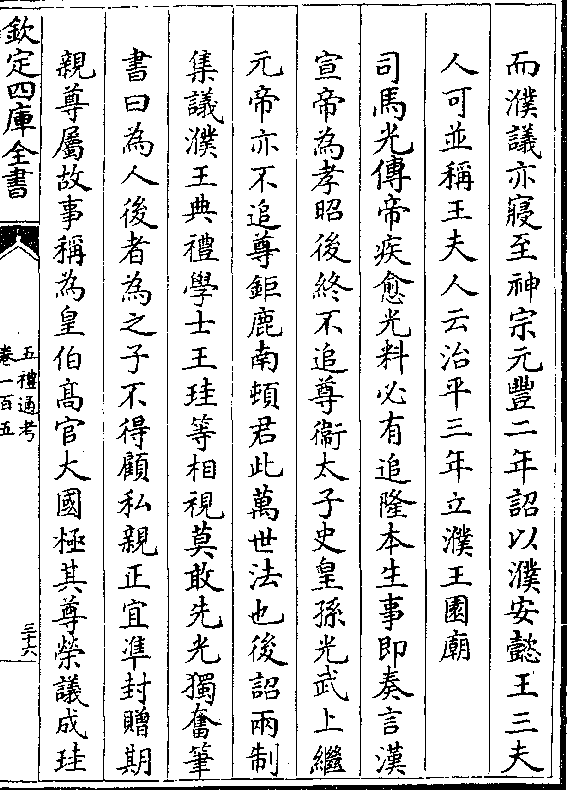 而濮議亦寢至神宗元豐二年詔以濮安懿王三夫
人可並稱王夫人云治平三年立濮王園廟
司馬光傳帝疾愈光料必有追隆本生事即奏言漢
宣帝為孝昭後終不追尊衞太子史皇孫光武上繼
元帝亦不追尊鉅鹿南頓君此萬世法也後詔兩制
集議濮王典禮學士王珪等相視莫敢先光獨奮筆
書曰為人後者為之子不得顧私親正宜凖封贈期
親尊屬故事稱為皇伯髙官大國極其尊榮議成珪
欽定四庫全書
五禮通考
卷一百五
三十六